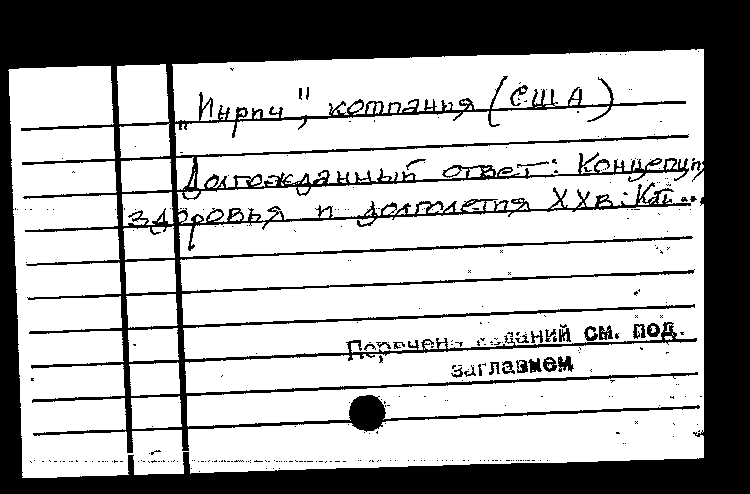 „Инрпч", компания (США)
Долгожданный ответ: Концепция
здоровья и долголетия XX в.: Кат...
Перечень изданий см. под.
заглавием